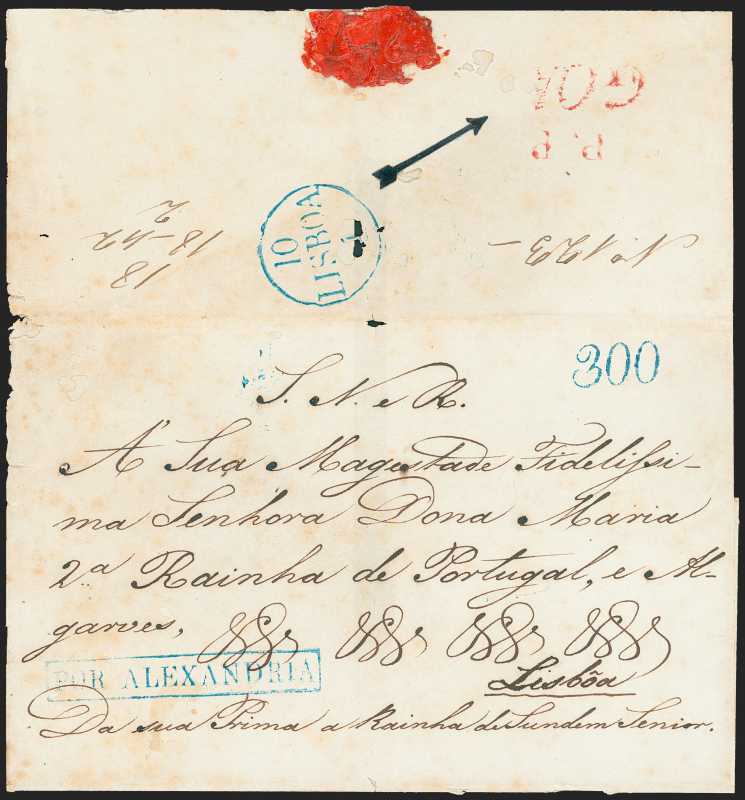 GOA
P. P.
10
LISBOA
1
No 1223 -
13
18-42
2
300
S. N. e R.
A' Sua Magestade Fidelissi-
ma Senhora Dona Maria
2.a Rainha de Portugal, e Al-
garves,
POR ALEXANDRIA
Lisbôa
Da sua Prima a Rainha de Sundem Senior.